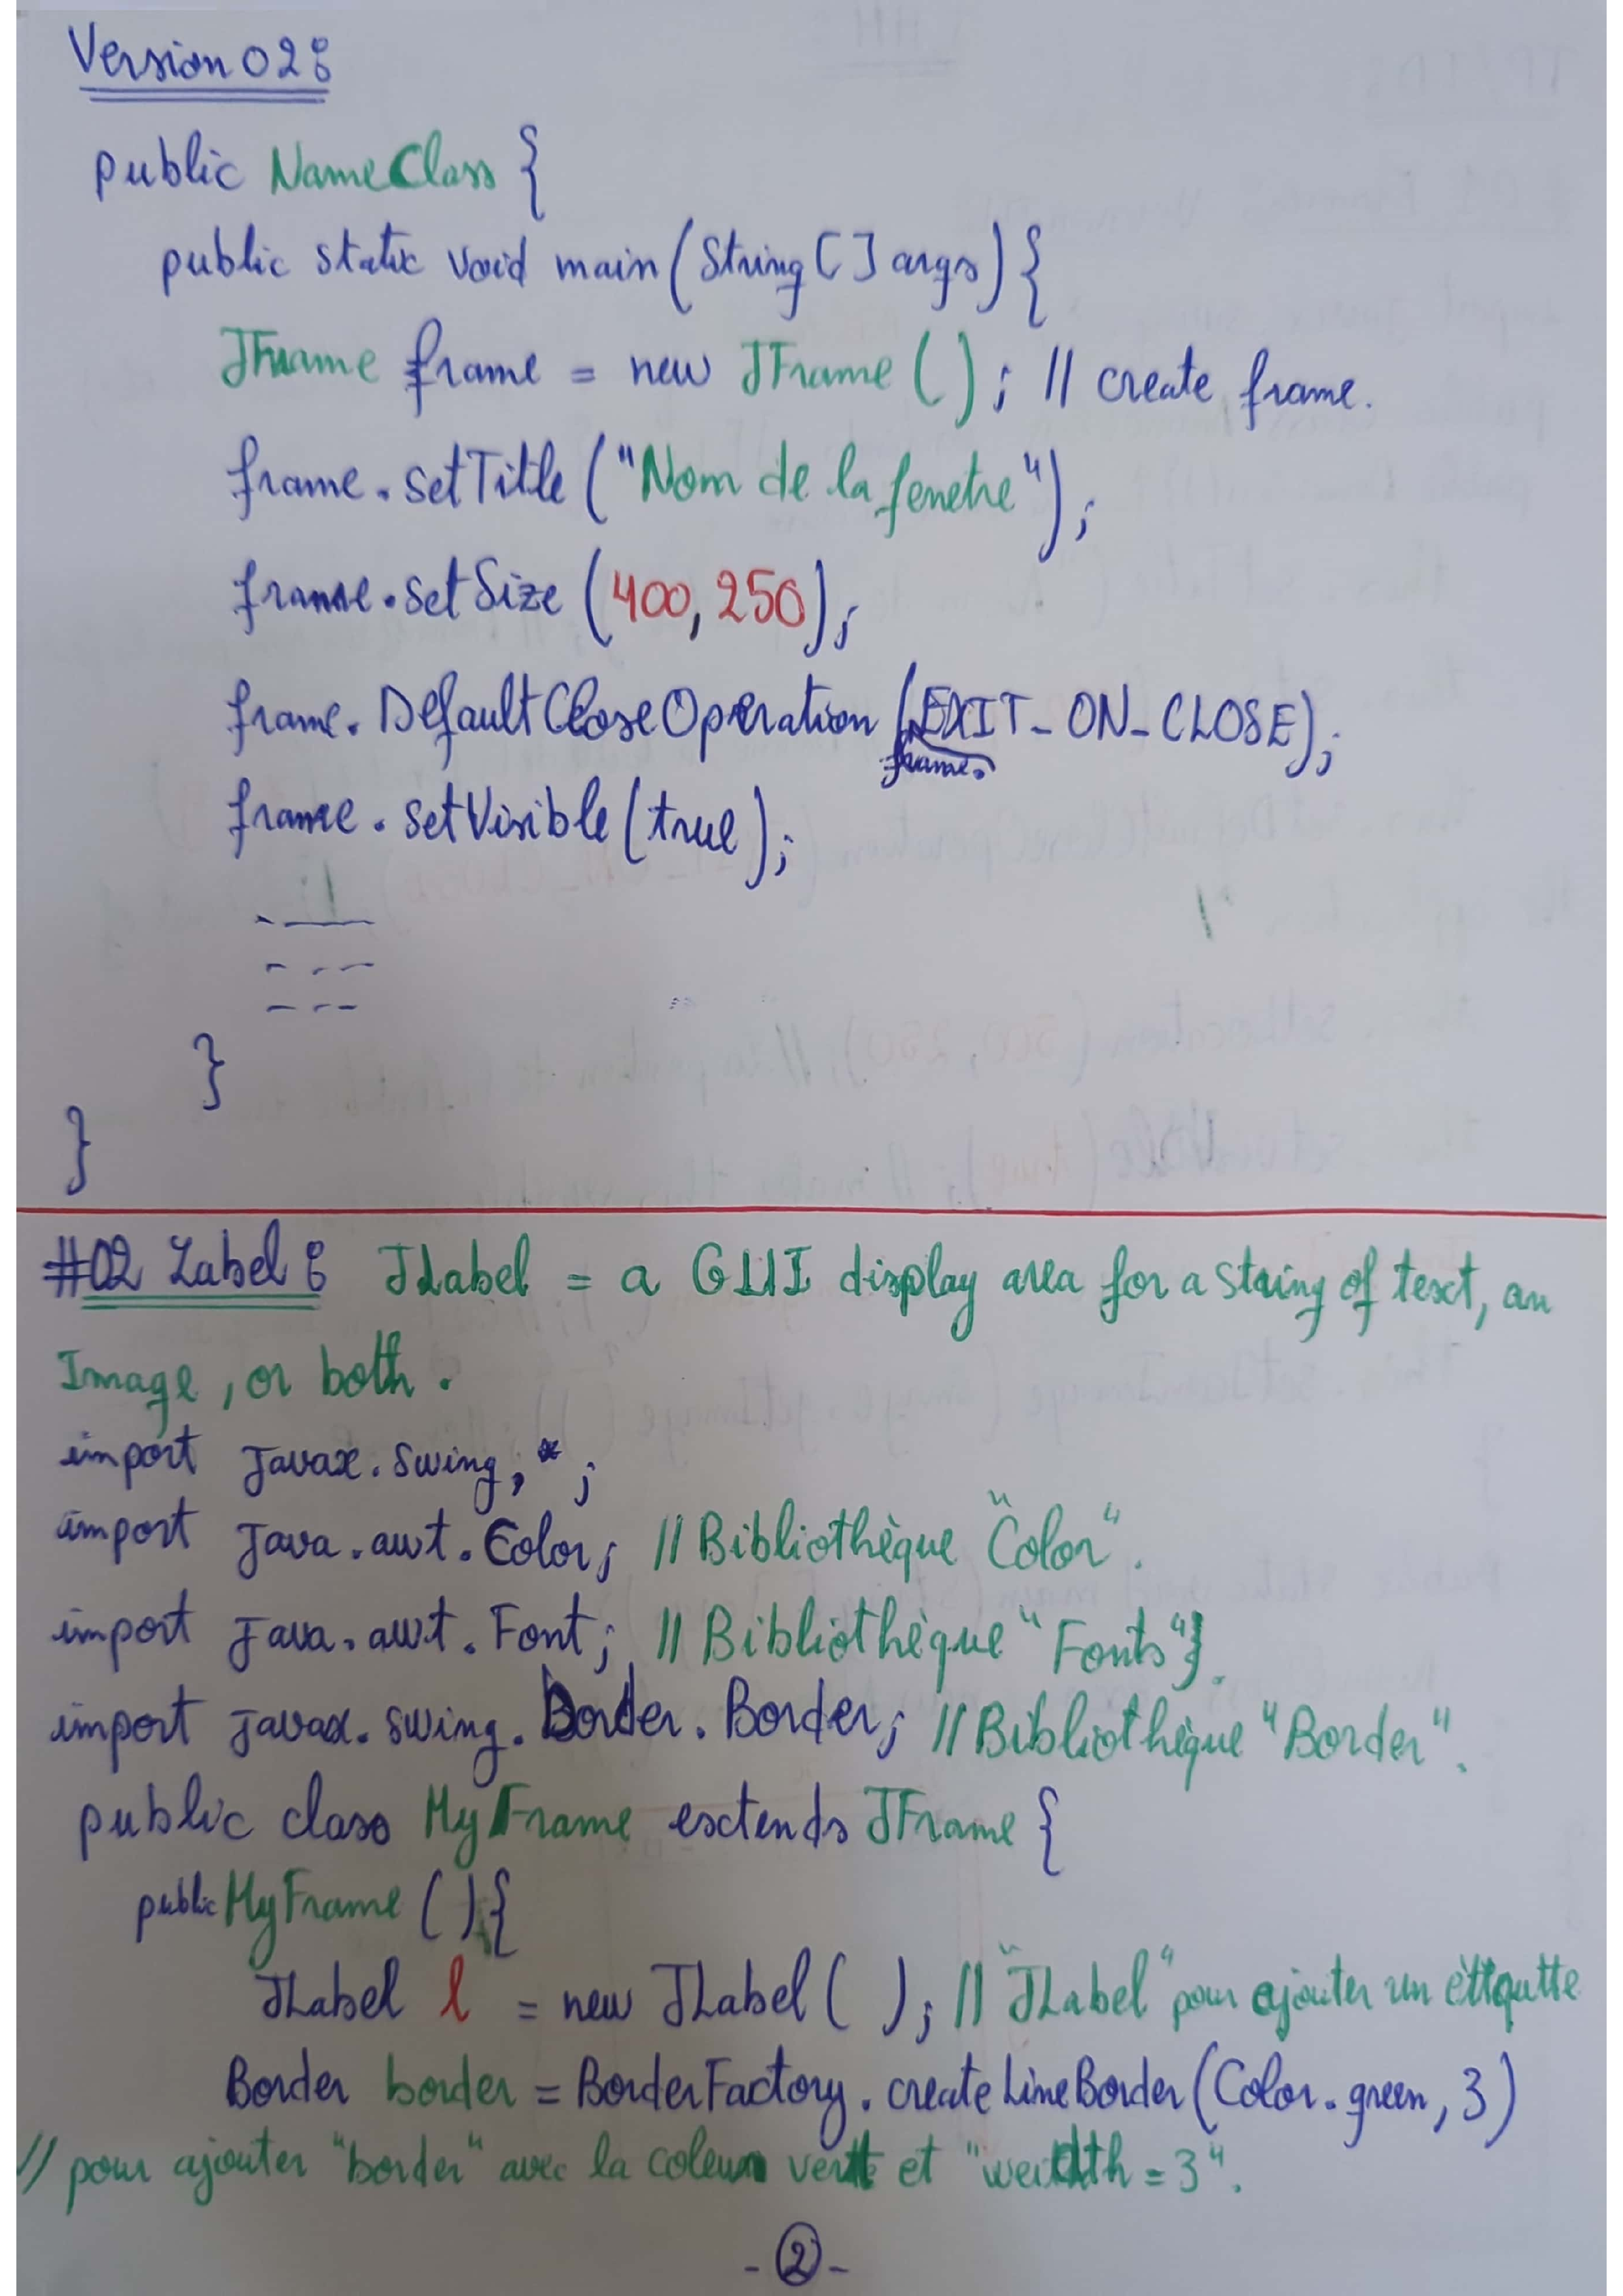 Version 02:
public NameClass {
public static void main(String[] args){
JFrame frame = new JFrame(); // create frame.
frame.setTitle("Nom de la fenetre");
frame.setSize(400, 250);
frame.DefaultCloseOperation(frame.EXIT_ON_CLOSE);
frame.setVisible(true);
}
}
#02 Label: JLabel = a GUI display area for a string of text, an
Image, or both.
import javax.swing,*;
import java.awt.Color; // Bibliothèque "Color".
import java.awt.Font; // Bibliothèque "Fonts".
import javax.swing.border.Border; // Bibliothèque "Border".
public class MyFrame extends JFrame {
public MyFrame(){
JLabel l = new JLabel( ); // "JLabel" pour ajouter un ètiqutte
Border border = BorderFactory.createLineBorder(Color.green, 3)
// pour ajouter "border" avec la coleur verte et "weidth = 3".
- 2 -